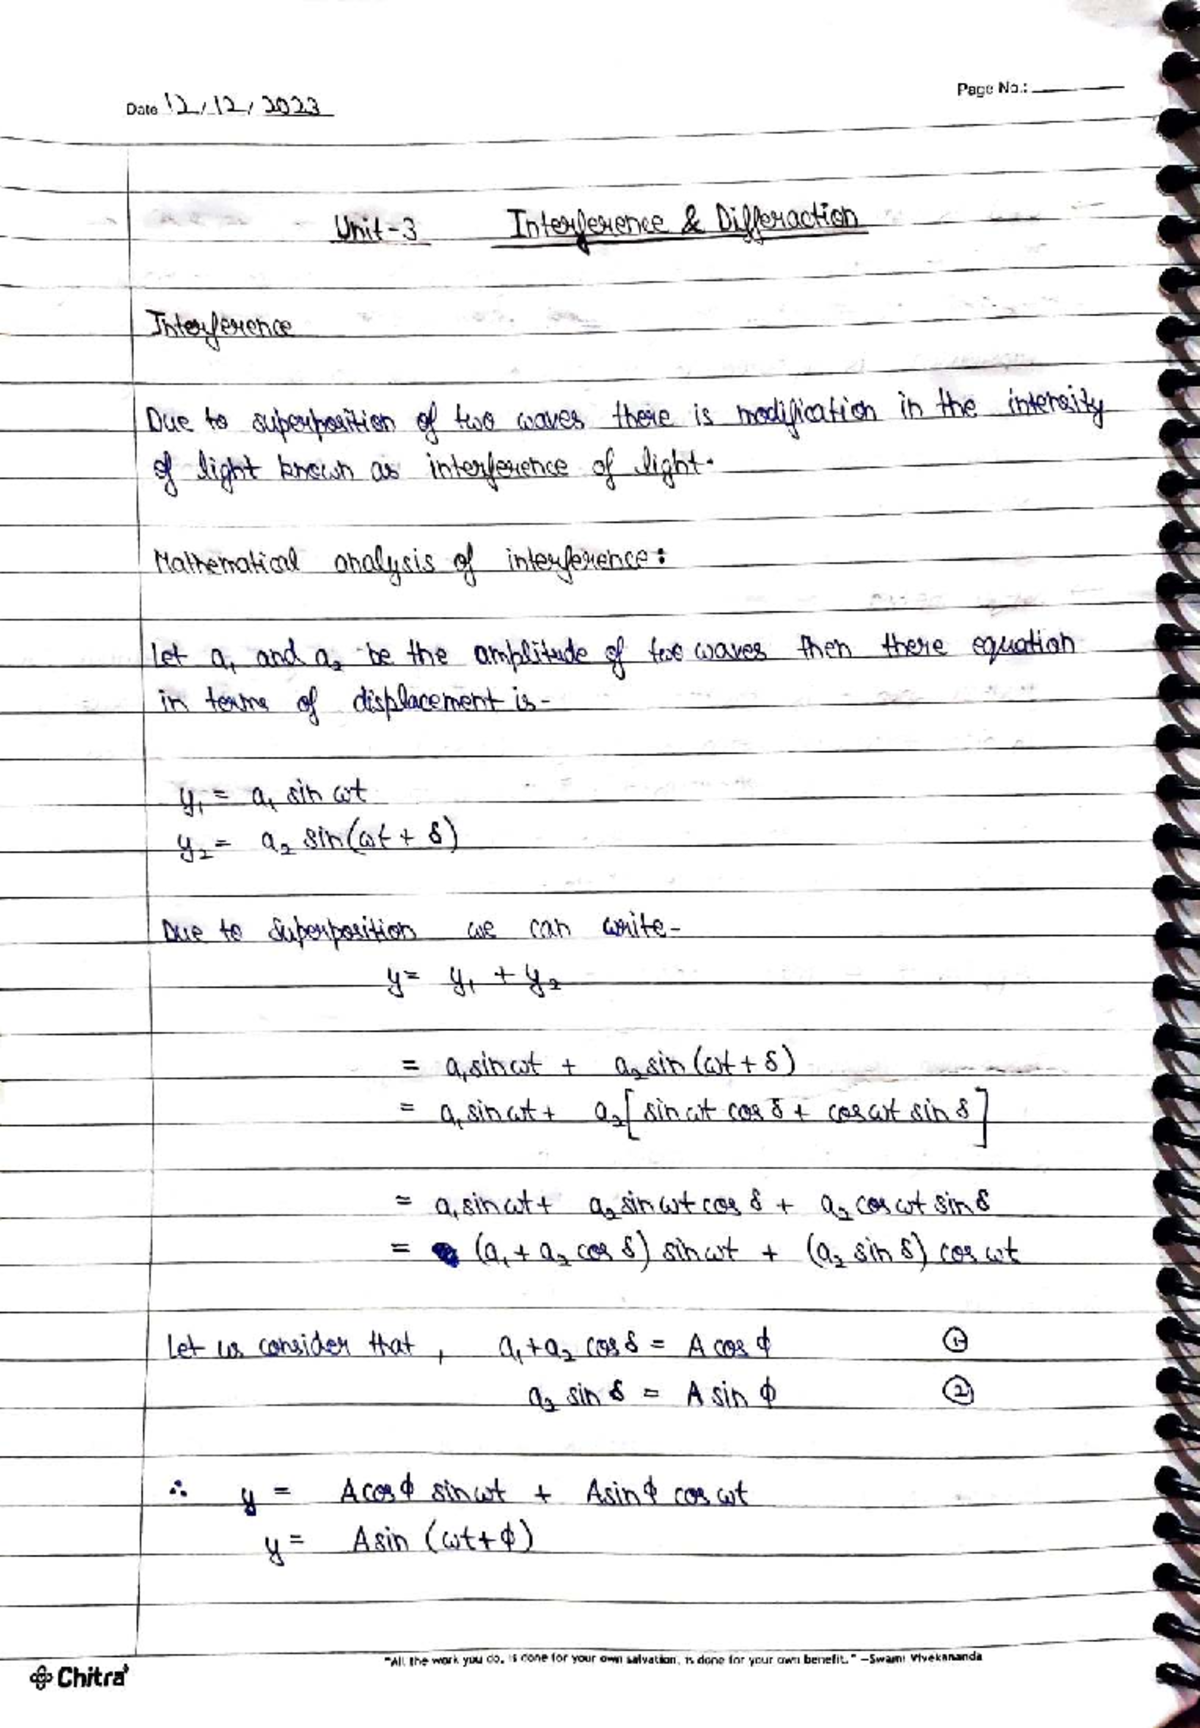 Page No.:
Date 12/12/2023
Unit-3 Interference & Differaction
Interference
Due to superposition of two waves there is modification in the intensity
of light known as interference of light.
Mathematical analysis of interference:
Let a₁ and a₂ be the amplitude of two waves then there equation
in terms of displacement is-
y₁ = a₁ sin ωt
y₂ = a₂ sin(ωt + δ)
Due to superposition we can write-
y = y₁ + y₂
= a₁sinωt + a₂sin(ωt + δ)
= a₁sinωt + a₂[sinωt cosδ + cosωt sinδ]
= a₁sinωt + a₂sinωt cosδ + a₂cosωt sinδ
= (a₁ + a₂ cosδ) sinωt + (a₂ sinδ) cosωt
Let us consider that, a₁+a₂ cosδ = A cosϕ ①
a₂ sinδ = A sinϕ ②
∴ y = Acosϕ sinωt + Asinϕ cosωt
y = Asin (ωt+ϕ)
Chitra
"All the work you do, is done for your own salvation, is done for your own benefit." –Swami Vivekananda